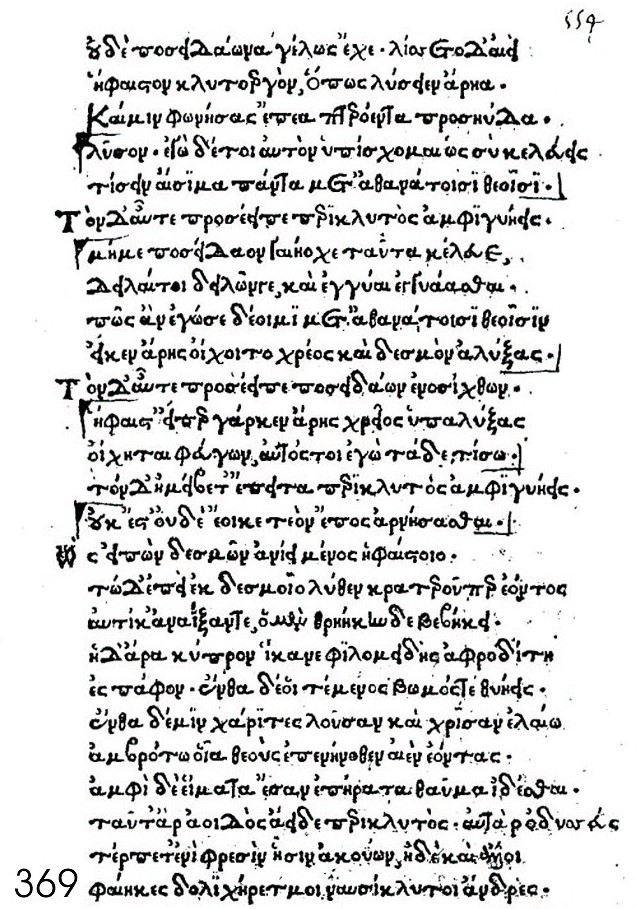 οὐδὲ ποσειδάωνα γέλως ἔχε· λίσσετο δ' αἰεὶ
ἥφαιστον κλυτοεργὸν, ὅπως λύσειεν ἄρηα·
Καί μιν φωνήσας ἔπεα πτερόεντα προσηύδα·
λῦσον· ἐγὼ δέ τοι αὐτὸν ὑπίσχομαι ὡς σὺ κελεύεις
τίσειν αἴσϊμα πάντα μετ' ἀθανάτοισϊ θεοῖσϊ·
Τὸν δ' αὖτε προσέειπε περικλυτὸς ἀμφϊγυήεις·
μή με ποσείδαον γαιήοχε ταῦτα κέλευε,
δειλαί τοι δειλῶν γε, καὶ ἐγγύαι ἐγγυάασθαι·
πῶς ἂν ἐγώ σε δέοιμϊ μετ' ἀθανάτοισϊ θεοῖσϊν
εἴ κεν ἄρης οἴχοιτο χρέος καὶ δεσμὸν ἀλύξας·
Τὸν δ' αὖτε προσέειπε ποσειδάων ἐνοσίχθων·
ἥφαιστ' εἴ περ γάρ κεν ἄρης χρεῖος ὑπαλύξας
οἴχηται φεύγων, αὐτός τοι ἐγὼ τάδε τίσω·
τὸν δ' ἠμείβετ' ἔπειτα περικλυτὸς ἀμφϊγυήεις·
οὐκ ἔστ' οὐδὲ ἔοικε τεὸν ἔπος ἀρνήσασθαι·
ὣς εἰπὼν δεσμῶν ἀνίει μένος ἡφαίστοιο·
τὼ δ' ἐπεὶ ἐκ δεσμοῖο λύθεν κρατεροῦ περ ἐόντος
αὐτίκ' ἀναΐξαντε, ὁ μὲν θρήκην δὲ βεβήκει·
ἡ δ' ἄρα κύπρον ἵκανε φϊλομειδὴς ἀφροδίτη
ἐς πάφον· ἔνθα δέ οἱ τέμενος βωμός τε θυήεις·
ἔνθα δέ μϊν χάρϊτες λοῦσαν καὶ χρῖσαν ἐλαίω
ἀμβρότω οἷα θεοὺς ἐπενήνοθεν αἰὲν ἐόντας·
ἀμφὶ δὲ εἵματα ἕσαν ἐπήρατα θαῦμα ἰδέσθαι·
ταῦτ' ἄρ' ἀοιδὸς ἄειδε περικλυτὸς· αὐτὰρ ὀδυσσεὺς
τέρπετ' ἐνὶ φρεσὶν ᾗσιν ἀκούων, ἠδὲ καὶ ἄλλοι
φαίηκες δολϊχήρετμοι ναυσίκλυτοι ἄνδρες·
369